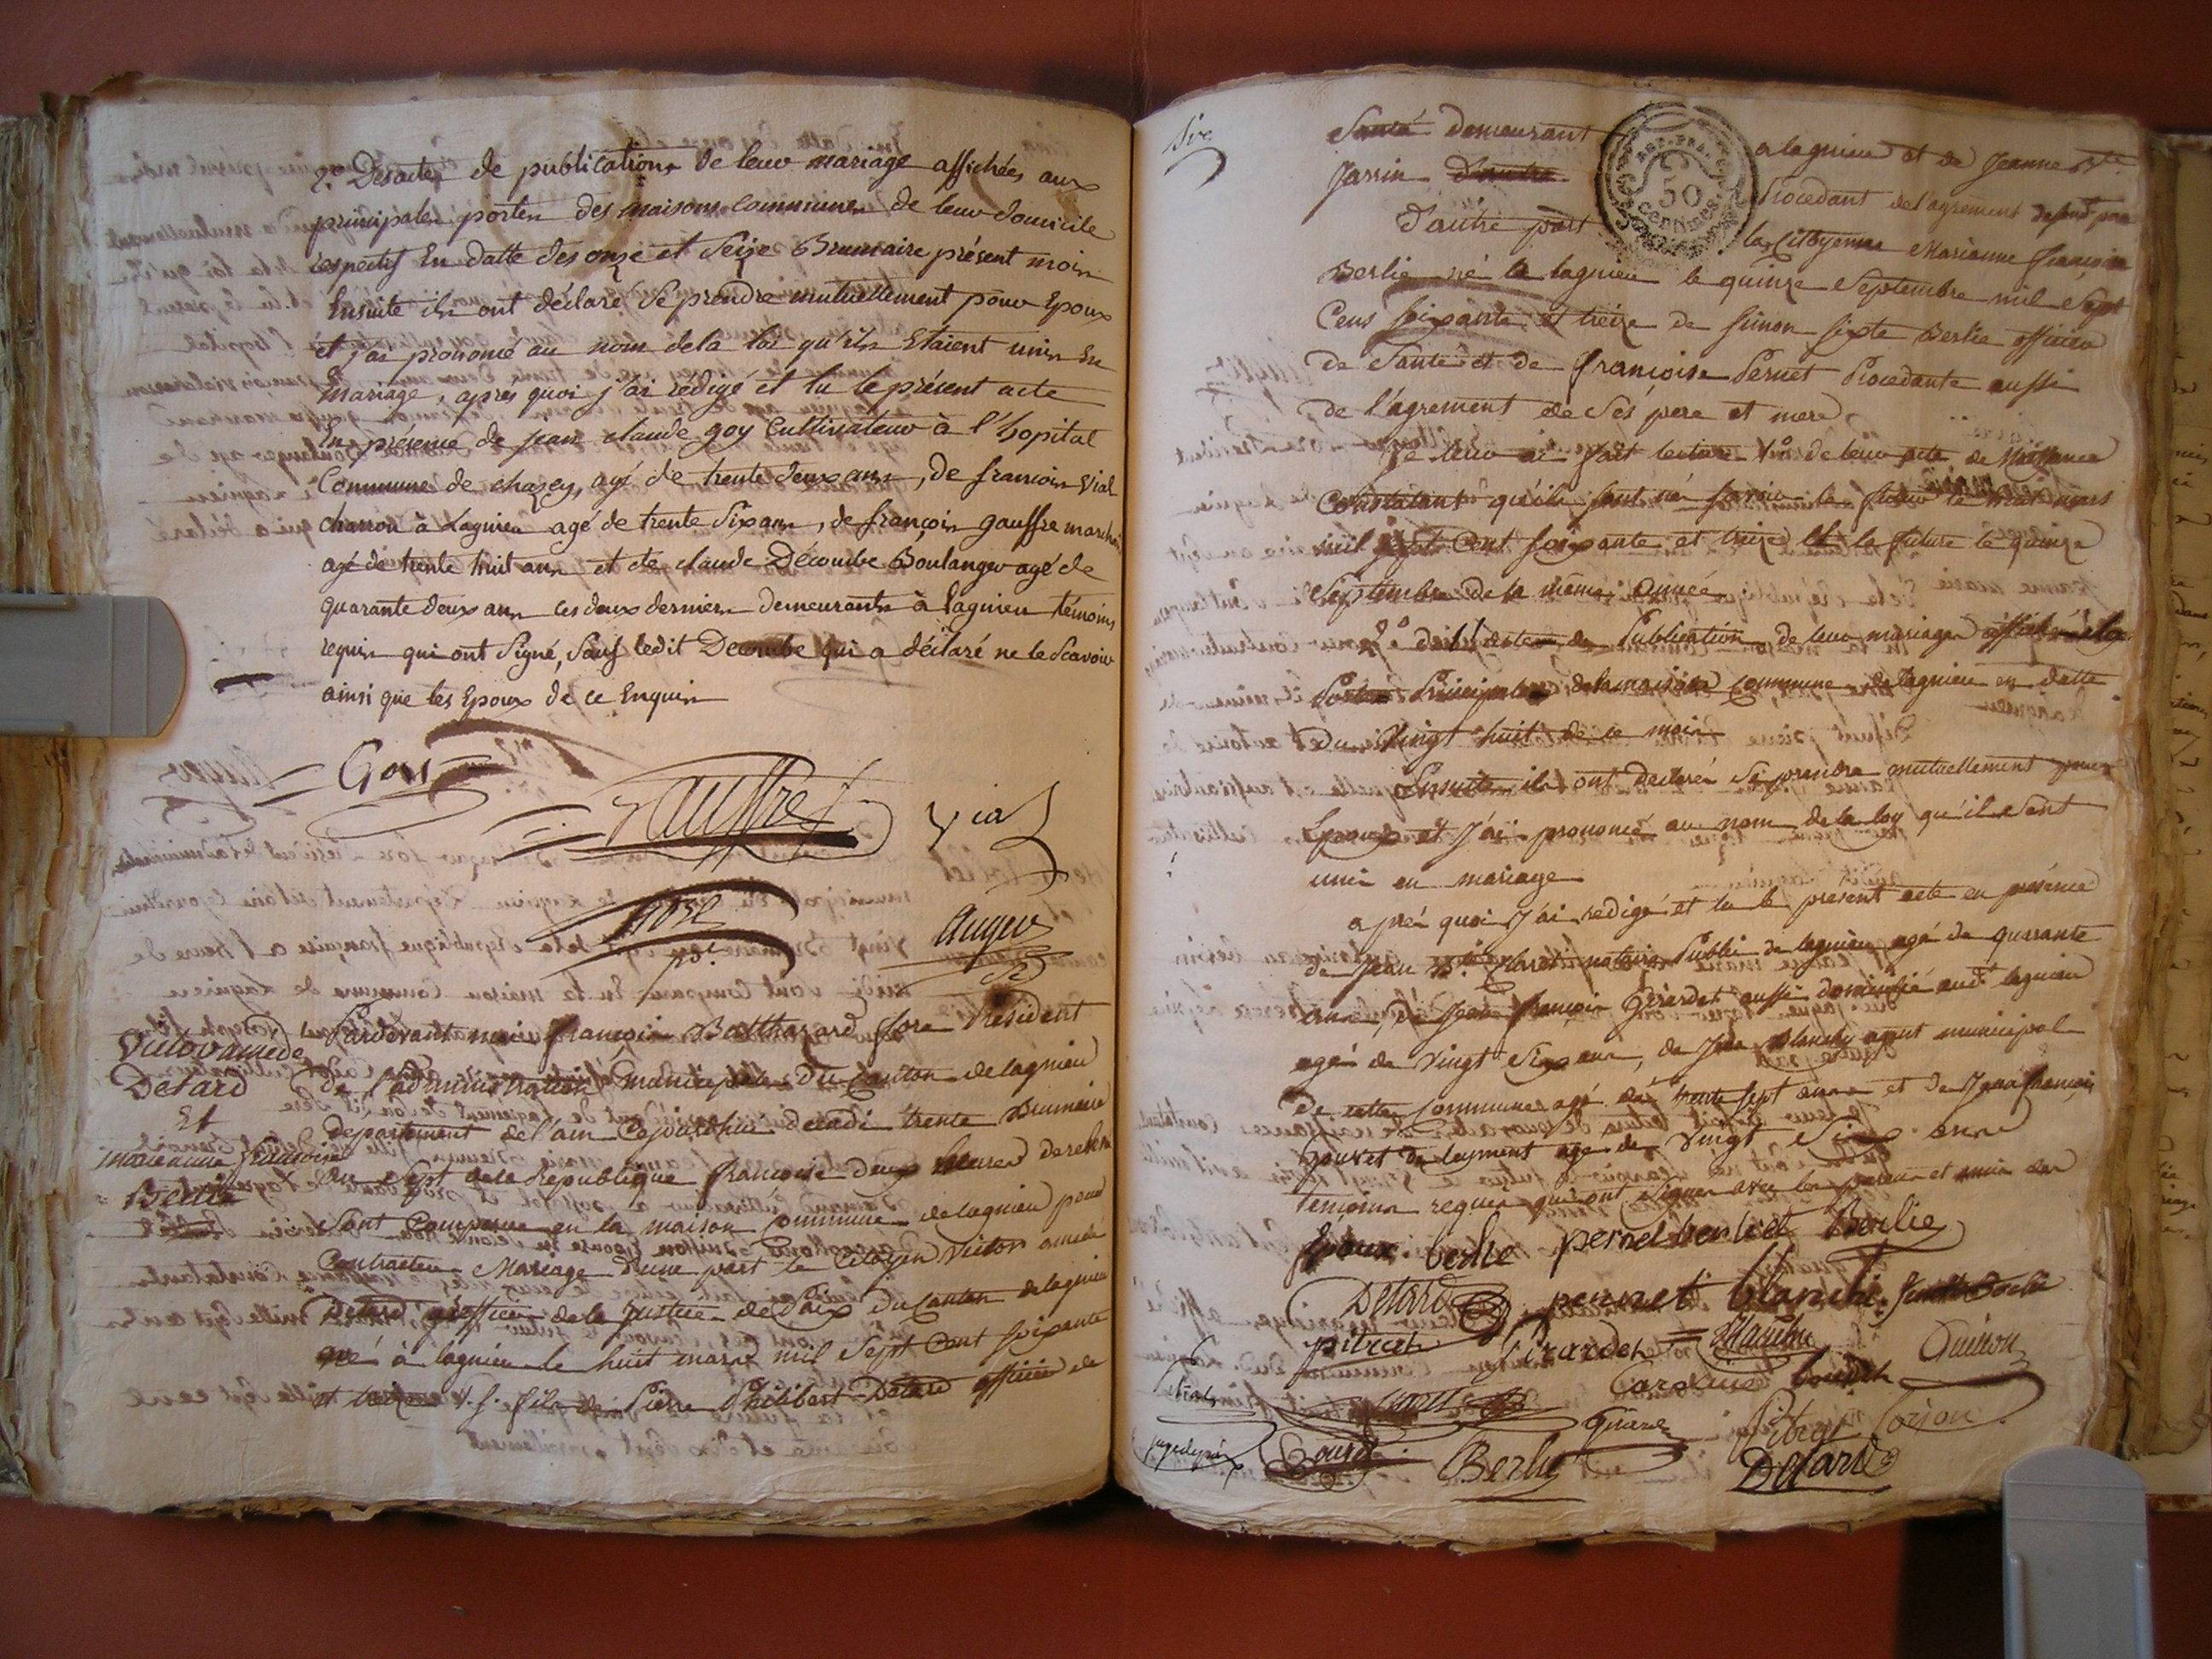 2° Des actes de publications de leur mariage affichées aux
principales portes des maisons Communes de leur domicile
respectif En datte des onze et Seize Brumaire présent mois
Ensuite ils ont déclaré Se prendre mutuellement pour Epoux
et j'ai prononcé au nom de la loi qu'ils Etaient unis En
mariage, après quoi j'ai rédigé et lu le présent acte
En présence de jean claude goy Cultivateur à l'hopital
Commune de chazey, agé de trente deux ans, de francois Vial
charron à Lagnieu agé de trente Six ans, de françois gauffre marchand
agé de trente huit ans et de claude Décombe Boulanger agé de
quarante deux ans ces deux derniers demeurants à lagnieu témoins
requis qui ont Signé, Sauf ledit Decombe qui a déclaré ne le Scavoir
ainsi que les Epoux de ce Enquis
Goy
Gauffre
Vial
fore
pdt
Auger
Sre
Victor amédé
Detard
Et
marianne françoise
Berlie
Pardevant moi françois Balthazard fore President
de l'administration municipale du Canton de lagnieu
departement de l'ain Cejourdhui decadi trente Brumaire
an Sept de la Republique francoise deux heures de relevé
Sont Comparus en la maison Commune de lagnieu pour
Contracter Mariage d'une part le Citoyen Victor amedé
Detard greffier de la justice de Paix du Canton de lagnieu
né à lagnieu le huit mars mil Sept Cent soixante
et treize v.s. fils de Pierre Philibert Detard officier de
Santé demeurant a lagnieu et de Jeanne Bte
Jarrin d'autre Procedant de l'agrement de
d'autre part la Citoyenne Marianne françoise
Berlie né a lagnieu le quinze Septembre mil Sept
Cens soixante et treize de simon sixte Berlie officier
de Santé et de françoise Pernet Procedante aussi
de l'agrement de Sés pere et mere
Je leur ai fait lecture 1° de leur acte de Naissance
Constatant qu'ils sont nés savoir le futur le huit mars
mil sept Cent soixante et treize Et la future le quinze
Septembre de la même année
2° de l'acte de Publication de leur mariage affiché a la
Porte Principale de la maison Commune de lagnieu en datte
du Vingt huit de ce mois
Ensuite ils ont declaré Se prendre mutuellement pour
Epoux et J'ai prononcé au nom de la loy qu'il Sont
unis en mariage
a prés quoi J'ai redigé et lu le present acte en présence
de Jean Bte Claret notaire Public de lagnieu agé de quarante
ans, de Jean françois Girardet aussi domicilié audt lagnieu
agé de Vingt Six ans, de Jean Blanchy agent municipal
de cette Commune agé de trente Sept ans et de Jean francois
gouvet de leyment agé de Vingt Six ans
temoins requis qui ont Signer avec les parens et amis des
Epoux. berlie pernet berliet Berlie
Detard pernet blanchi
pitrat girardet
Caroline
Guinon
Berlie
Detard
50
centimes